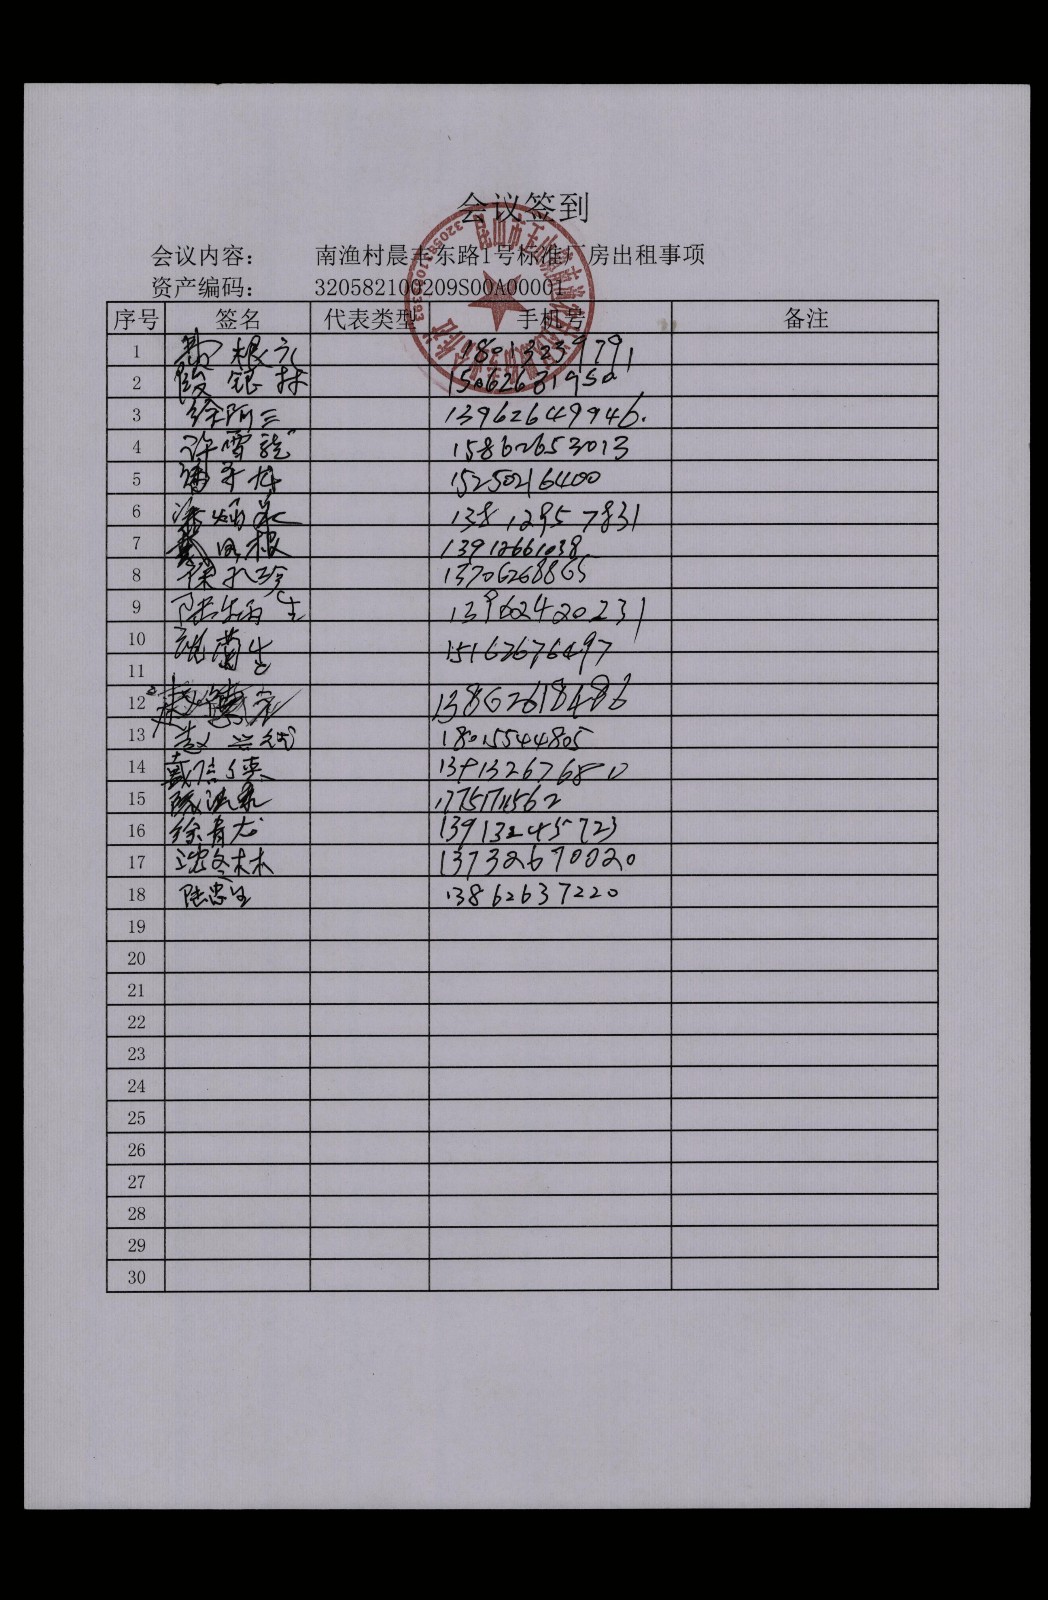 会议签到
会议内容： 南渔村晨丰东路1号标准厂房出租事项
资产编码： 320582100209S00A00001
序号 签名 代表类型 手机号 备注
1 根 18013239791
2 银林 15062631950
3 徐阿三 13962649946.
4 许雪龙 15862653013
5 15250216400
6 13812957831
7 戴凤根 13912661038
8 13706268865
9 陆炳生 13962420231
10 菊生 15162676497
11
12 赵 13862618486
13 赵 18015544805
14 戴 13913267680
15 17751711562
16 徐青龙 13913245723
17 沈冬林 13732670020
18 陆忠生 13862637220
19
20
21
22
23
24
25
26
27
28
29
30